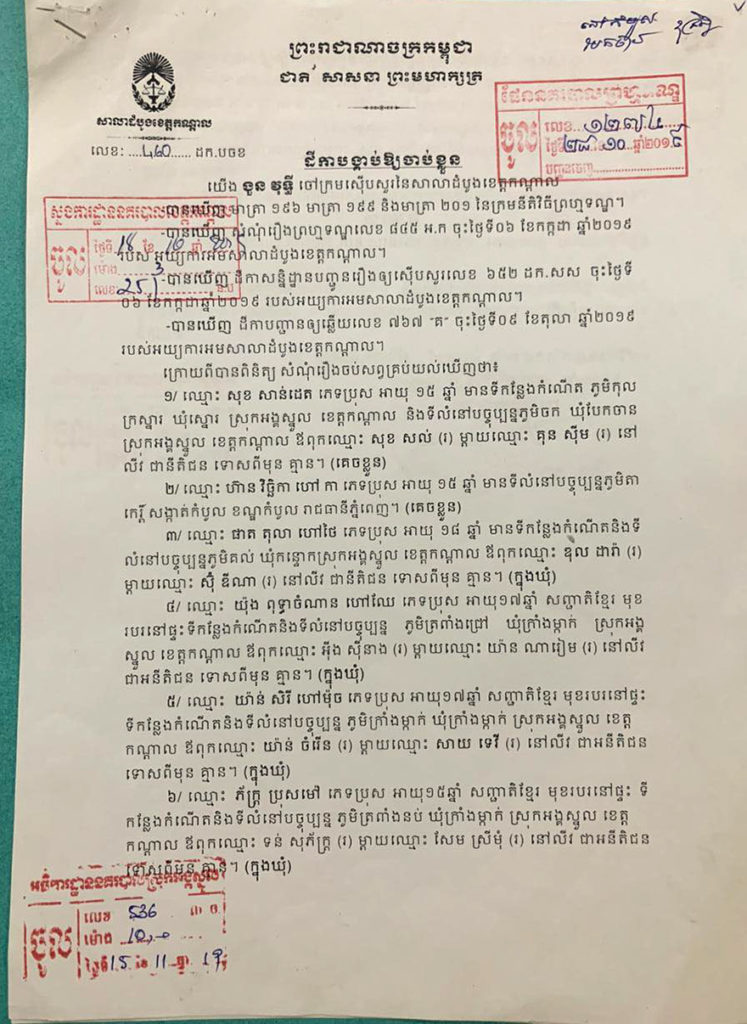 ព្រះរាជាណាចក្រកម្ពុជា
ជាតិ សាសនា ព្រះមហាក្សត្រ
សាលាដំបូងខេត្តកណ្តាល
លេខ: ....៤៦០...... ដក.បចខ
ផែននគរបាលព្រហ្មទណ្ឌ
ចូល
លេខ...១២៧៤
ថ្ងៃទី ២៨ ១០ ឆ្នាំ២០១៩
បញ្ជូនចេញ
ដីកាបង្គាប់ឱ្យចាប់ខ្លួន
យើង ងួន វុទ្ធី ចៅក្រមស៊ើបសួរនៃសាលាដំបូងខេត្តកណ្តាល
ចូល
ថ្ងៃទី 18 ខែ 10 ឆ្នាំ
ម៉ោង 3
លេខ 251
-បានឃើញ មាត្រា ១៩៦ មាត្រា ១៩៩ និងមាត្រា ២០១ នៃក្រមនីតិវិធីព្រហ្មទណ្ឌ។
-បានឃើញ សំណុំរឿងព្រហ្មទណ្ឌលេខ ៨៤៥ អ.ក ចុះថ្ងៃទី០៦ ខែកក្កដា ឆ្នាំ២០១៩
របស់ អយ្យការអមសាលាដំបូងខេត្តកណ្តាល។
-បានឃើញ ដីកាសន្និដ្ឋានបញ្ជូនរឿងឲ្យស៊ើបសួរលេខ ៦៥២ ដក.សស ចុះថ្ងៃទី
០៦ ខែកក្កដាឆ្នាំ២០១៩ របស់អយ្យការអមសាលាដំបូងខេត្តកណ្តាល។
-បានឃើញ ដីកាបញ្ជានឲ្យឆ្លើយលេខ ៧៦៧ "គ" ចុះថ្ងៃទី០៩ ខែតុលា ឆ្នាំ២០១៩
របស់អយ្យការអមសាលាដំបូងខេត្តកណ្តាល។
ក្រោយពីបានពិនិត្យ សំណុំរឿងចប់សព្វគ្រប់យល់ឃើញថា៖
១/ ឈ្មោះ សុខ សាន់ដេត ភេទប្រុស អាយុ ១៥ ឆ្នាំ មានទីកន្លែងកំណើត ភូមិកុល
ក្រស្នារ ឃុំស្នោរ ស្រុកអង្គស្នួល ខេត្តកណ្តាល និងទីលំនៅបច្ចុប្បន្នភូមិចក ឃុំបែកចាន
ស្រុកអង្គស្នួល ខេត្តកណ្តាល ឪពុកឈ្មោះ សុខ សល់ (រ) ម្តាយឈ្មោះ គុន ស៊ីម (រ) នៅ
លីវ ជានីតិជន ទោសពីមុន គ្មាន។ (គេចខ្លួន)
២/ ឈ្មោះ ហ៊ាន វិច្ឆិកា ហៅ កា ភេទប្រុស អាយុ ១៥ ឆ្នាំ មានទីលំនៅបច្ចុប្បន្នភូមិតា
កេរ្តិ៍ សង្កាត់កំបូល ខណ្ឌកំបូល រាជធានីភ្នំពេញ។ (គេចខ្លួន)
៣/ ឈ្មោះ ផាត តុលា ហៅថៃ ភេទប្រុស អាយុ ១៨ ឆ្នាំ មានទីកន្លែងកំណើតនិងទី
លំនៅបច្ចុប្បន្នភូមិគល់ ឃុំកន្ទោកស្រុកអង្គស្នួល ខេត្តកណ្តាល ឪពុកឈ្មោះ ឌុល ដារ៉ា (រ)
ម្តាយឈ្មោះ ស៊ុំ ឌីណា (រ) នៅលីវ ជានីតិជន ទោសពីមុន គ្មាន។ (ក្នុងឃុំ)
៤/ ឈ្មោះ យ៉ុង ពុទ្ធាចំណាន ហៅឈៃ ភេទប្រុស អាយុ១៧ឆ្នាំ សញ្ជាតិខ្មែរ មុខ
របរនៅផ្ទះទីកន្លែងកំណើតនិងទីលំនៅបច្ចុប្បន្ន ភូមិត្រពាំងជ្រៅ ឃុំក្រាំងម្កាក់ ស្រុកអង្គ
ស្នួល ខេត្តកណ្តាល ឪពុកឈ្មោះ អ៊ឹង ស៊ីនាង (រ) ម្តាយឈ្មោះ យ៉ាន ណារៀម (រ) នៅលីវ
ជាអនីតិជន ទោសពីមុន គ្មាន។ (ក្នុងឃុំ)
៥/ ឈ្មោះ យ៉ាន់ សិរី ហៅម៉ុច ភេទប្រុស អាយុ១៧ឆ្នាំ សញ្ជាតិខ្មែរ មុខរបរនៅផ្ទះ
ទីកន្លែងកំណើតនិងទីលំនៅបច្ចុប្បន្ន ភូមិក្រាំងម្កាក់ ឃុំក្រាំងម្កាក់ ស្រុកអង្គស្នួល ខេត្ត
កណ្តាល ឪពុកឈ្មោះ យ៉ាន់ ចំរើន (រ) ម្តាយឈ្មោះ សាយ ទេវី (រ) នៅលីវ ជាអនីតិជន
ទោសពីមុន គ្មាន។ (ក្នុងឃុំ)
៦/ ឈ្មោះ ភ័ក្ត្រ ប្រុសមៅ ភេទប្រុស អាយុ១៥ឆ្នាំ សញ្ជាតិខ្មែរ មុខរបរនៅផ្ទះ ទី
កន្លែងកំណើតនិងទីលំនៅបច្ចុប្បន្ន ភូមិត្រពាំងនប់ ឃុំក្រាំងម្កាក់ ស្រុកអង្គស្នួល ខេត្ត
កណ្តាល ឪពុកឈ្មោះ ទន់ សុភ័ក្ត្រ (រ) ម្តាយឈ្មោះ សែម ស្រីមុំ (រ) នៅលីវ ជាអនីតិជន
ទោសពីមុន គ្មាន។ (ក្នុងឃុំ)
អធិការដ្ឋាននគរបាលស្រុកអង្គស្នួល
ចូល
លេខ 536
ម៉ោង 10
ថ្ងៃទី 15 ខែ 11 ឆ្នាំ 19